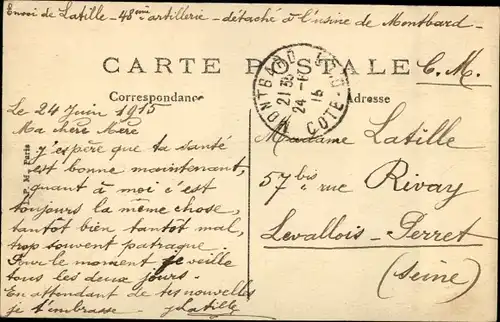 Envoi de Latille - 48ème artillerie - détaché à l'usine de Montbard -
CARTE POSTALE
C. M.
Correspondance
Adresse
MONTBARD
COTE-D'OR
24 - 6
15
Le 24 Juin 1915
Ma chère Mère
j'espère que ta santé
est bonne maintenant,
quant à moi c'est
toujours la même chose,
tantôt bien tantôt mal,
trop souvent patraque.
Pour le moment je veille
tous les deux jours.
En attendant de tes nouvelles
je t'embrasse - Latille
Madame Latille
57 bis rue Rivay
Levallois-Perret
(Seine)
P. M. Paris